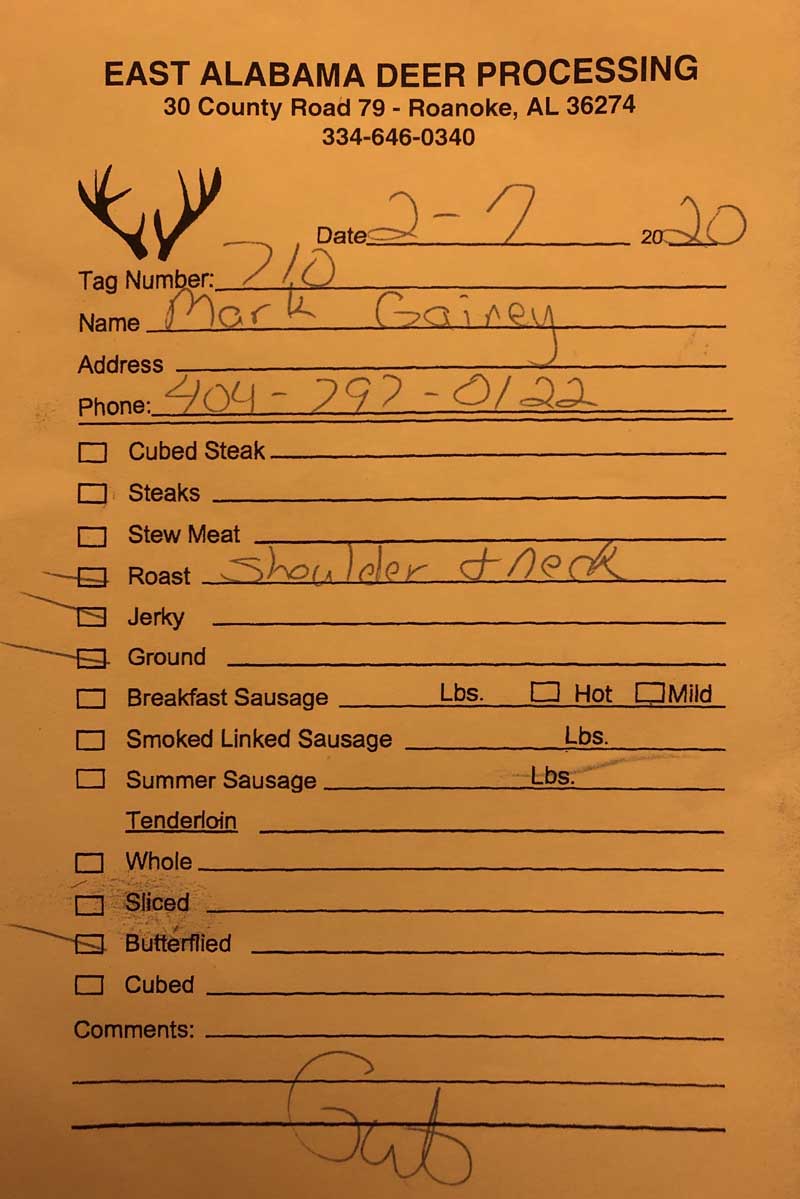 EAST ALABAMA DEER PROCESSING
30 County Road 79 - Roanoke, AL 36274
334-646-0340
Date 2-7 2020
Tag Number: 710
Name Mark Gainey
Address
Phone: 404-797-0122
Cubed Steak
Steaks
Stew Meat
Roast Shoulder & neck
Jerky
Ground
Breakfast Sausage Lbs. Hot Mild
Smoked Linked Sausage Lbs.
Summer Sausage Lbs.
Tenderloin
Whole
Sliced
Butterflied
Cubed
Comments: